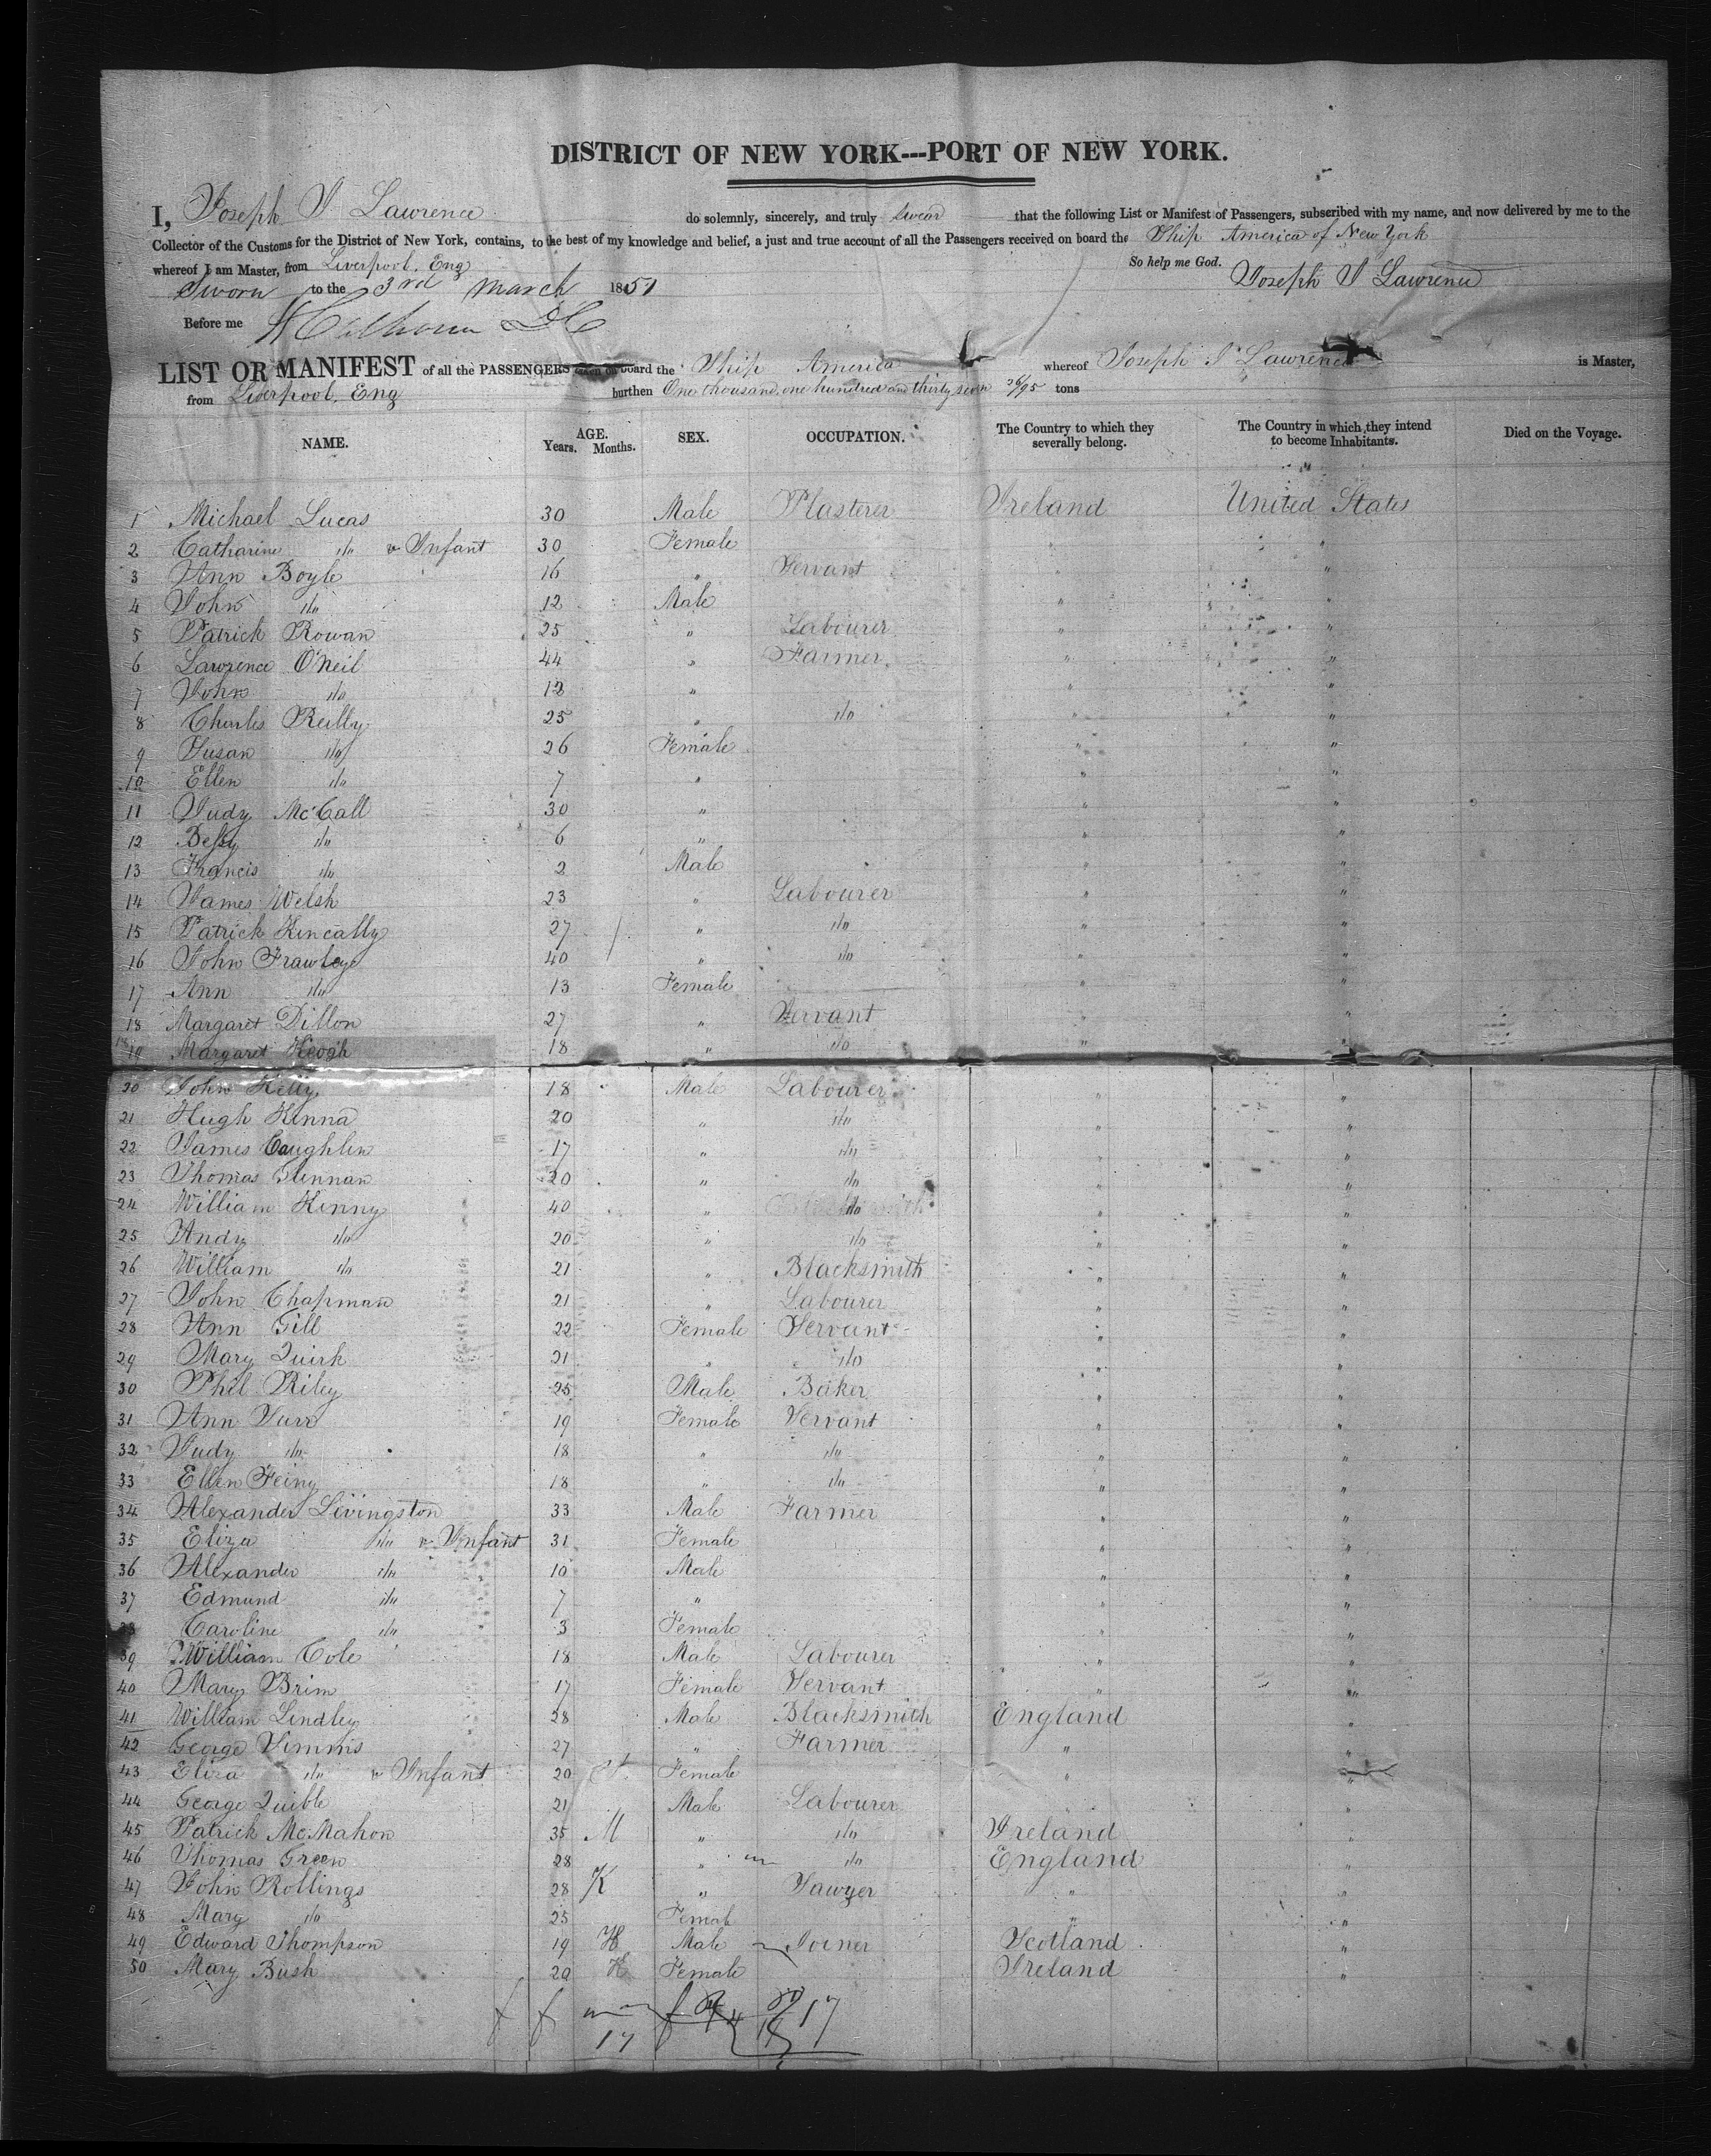 DISTRICT OF NEW YORK---PORT OF NEW YORK.
I, Joseph J Lawrence do solemnly, sincerely, and truly swear that the following List or Manifest of Passengers, subscribed with my name, and now delivered by me to the
Collector of the Customs for the District of New York, contains, to the best of my knowledge and belief, a just and true account of all the Passengers received on board the Ship America of New York
whereof I am Master, from Liverpool, Eng So help me God.
Sworn to the 3rd March 1851 Joseph J Lawrence
Before me
LIST OR MANIFEST of all the PASSENGERS taken on board the Ship America whereof Joseph J Lawrence is Master,
from Liverpool, Eng burthen One thousand, one hundred and thirty seven 26/95 tons
NAME. AGE. Years. Months. SEX. OCCUPATION. The Country to which they severally belong. The Country in which they intend to become Inhabitants. Died on the Voyage.
1 Michael Lucas 30 Male Plasterer Ireland United States
2 Catharine do & Infant 30 Female " "
3 Ann Boyle 16 " Servant " "
4 John do 12 Male " "
5 Patrick Rowan 25 " Labourer " "
6 Lawrence O'Neil 44 " Farmer " "
7 John do 12 " " "
8 Charles Reilly 25 " do " "
9 Susan do 26 Female " "
10 Ellen do 7 " " "
11 Judy McCall 30 " " "
12 Bessy do 6 " " "
13 Francis do 2 Male " "
14 James Welsh 23 " Labourer " "
15 Patrick Kincally 27 " do " "
16 John Frawley 40 " do " "
17 Ann do 13 Female " "
18 Margaret Dillon 27 " Servant " "
19 Margaret Keogh 18 " do " "
20 John Kelly 18 Male Labourer " "
21 Hugh Kinna 20 " do " "
22 James Coughlin 17 " do " "
23 Thomas Glennan 20 " do " "
24 William Kinny 40 " do " "
25 Andy do 20 " do " "
26 William do 21 " Blacksmith " "
27 John Chapman 21 " Labourer " "
28 Ann Gill 22 Female Servant " "
29 Mary Quirk 21 " do " "
30 Phil Riley 25 Male Baker " "
31 Ann 19 Female Servant " "
32 Judy do 18 " do " "
33 Ellen Feiny 18 " do " "
34 Alexander Livingston 33 Male Farmer " "
35 Eliza do & Infant 31 Female " "
36 Alexander do 10 Male " "
37 Edmund do 7 " " "
38 Caroline do 3 Female " "
39 William Cole 18 Male Labourer " "
40 Mary Brim 17 Female Servant " "
41 William Lindley 28 Male Blacksmith England "
42 George Simms 27 " Farmer " "
43 Eliza do & Infant 20 Female " "
44 George Quible 21 Male Labourer " "
45 Patrick McMahon 35 M " do Ireland "
46 Thomas Green 28 " do England "
47 John Rollings 28 K " Sawyer " "
48 Mary do 25 Female " "
49 Edward Thompson 19 H Male Joiner Scotland "
50 Mary Bush 20 H Female Ireland "
17
17